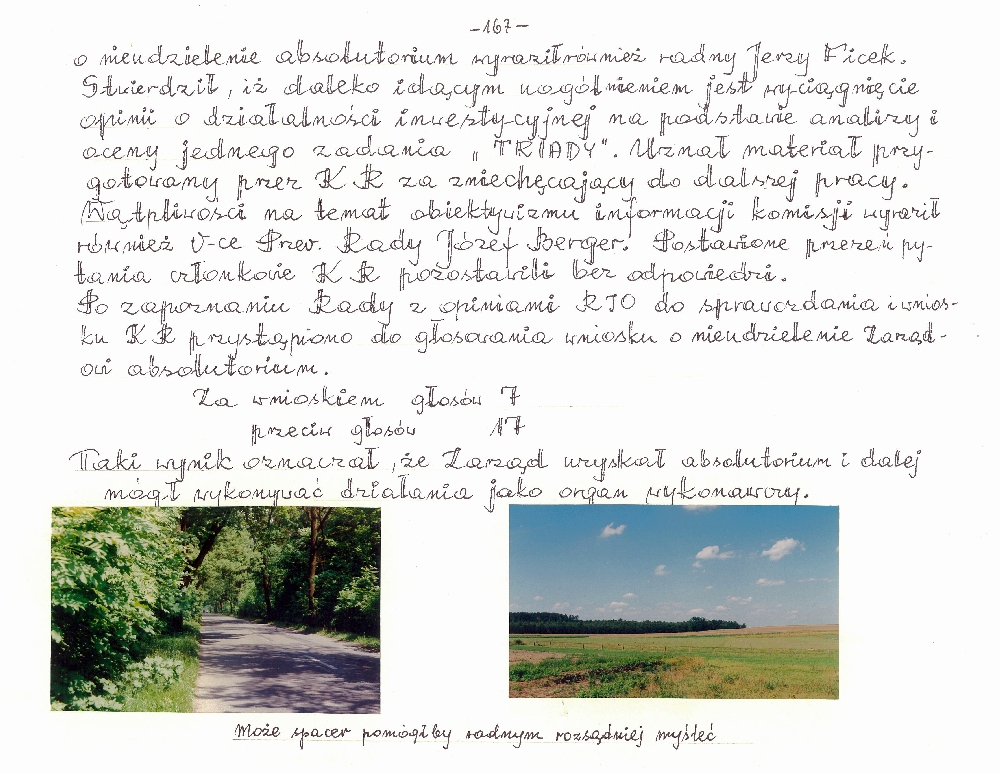 -167-
o nieudzielenie absolutorium wyraził również radny Jerzy Ficek.
Stwierdził, iż daleko idącym uogólnieniem jest wyciągnięcie
opinii o działalności inwestycyjnej na podstawie analizy i
oceny jednego zadania „TRIADY". Uznał materiał przy-
gotowany przez KR za zniechęcający do dalszej pracy.
Wątpliwości na temat obiektywizmu informacji komisji wyraził
również V-ce Prew. Rady Józef Berger. Postawione przezeń py-
tania członkowie KR pozostawili bez odpowiedzi.
Po zapoznaniu Rady z opiniami RIO do sprawozdania i wnios-
ku KR przystąpiono do głosowania wniosku o nieudzielenie Zarząd-
owi absolutorium.
Za wnioskiem głosów 7
przeciw głosów 17
Taki wynik oznaczał, że Zarząd uzyskał absolutorium i dalej
mógł wykonywać działania jako organ wykonawczy.
Może spacer pomógłby radnym rozsądniej myśleć